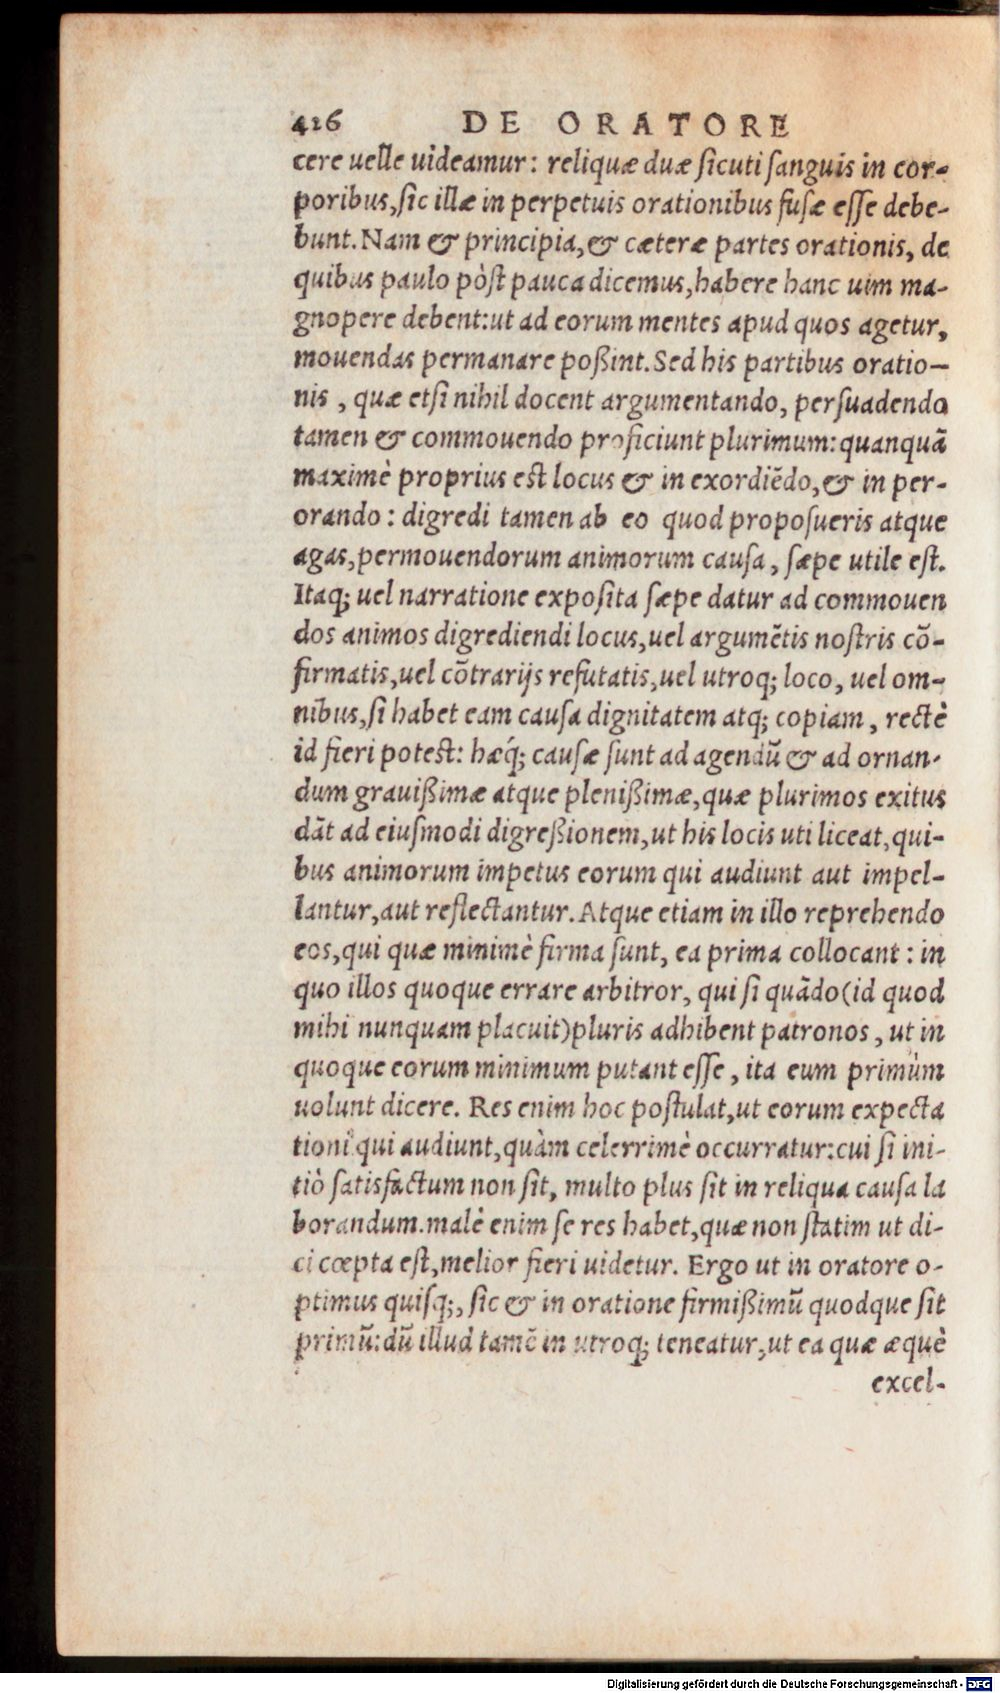 426 DE ORATORE
cere uelle uideamur: reliquæ duæ sicuti sanguis in cor-
poribus, sic illæ in perpetuis orationibus fusæ esse debe-
bunt. Nam & principia, & cæteræ partes orationis, de
quibus paulo pòst pauca dicemus, habere hanc uim ma-
gnopere debent: ut ad eorum mentes apud quos agetur,
mouendas permanare poßint. Sed his partibus oratio-
nis, quæ etsi nihil docent argumentando, persuadendo
tamen & commouendo proficiunt plurimum: quanquã
maximè proprius est locus & in exordiẽdo, & in per-
orando: digredi tamen ab eo quod proposueris atque
agas, permouendorum animorum causa, sæpe utile est.
Itaq; uel narratione exposita sæpe datur ad commouen
dos animos digrediendi locus, uel argumẽtis nostris cõ-
firmatis, uel cõtrarijs refutatis, uel utroq; loco, uel om-
nibus, si habet eam causa dignitatem atq; copiam, rectè
id fieri potest: hæq́; causæ sunt ad agendũ & ad ornan-
dum grauißimæ atque plenißimæ, quæ plurimos exitus
dãt ad eiusmodi digreßionem, ut his locis uti liceat, qui-
bus animorum impetus eorum qui audiunt aut impel-
lantur, aut reflectantur. Atque etiam in illo reprehendo
eos, qui quæ minimè firma sunt, ea prima collocant: in
quo illos quoque errare arbitror, qui si quãdo (id quod
mihi nunquam placuit) pluris adhibent patronos, ut in
quoque eorum minimum putant esse, ita eum primùm
uolunt dicere. Res enim hoc postulat, ut eorum expecta
tioni qui audiunt, quàm celerrimè occurratur: cui si ini-
tiò satisfactum non sit, multo plus sit in reliqua causa la
borandum. malè enim se res habet, quæ non statim ut di-
ci cœpta est, melior fieri uidetur. Ergo ut in oratore o-
ptimus quisq;, sic & in oratione firmißimũ quodque sit
primũ: dũ illud tamẽ in utroq; teneatur, ut ea quæ æquè
excel-
Digitalisierung gefördert durch die Deutsche Forschungsgemeinschaft - DFG